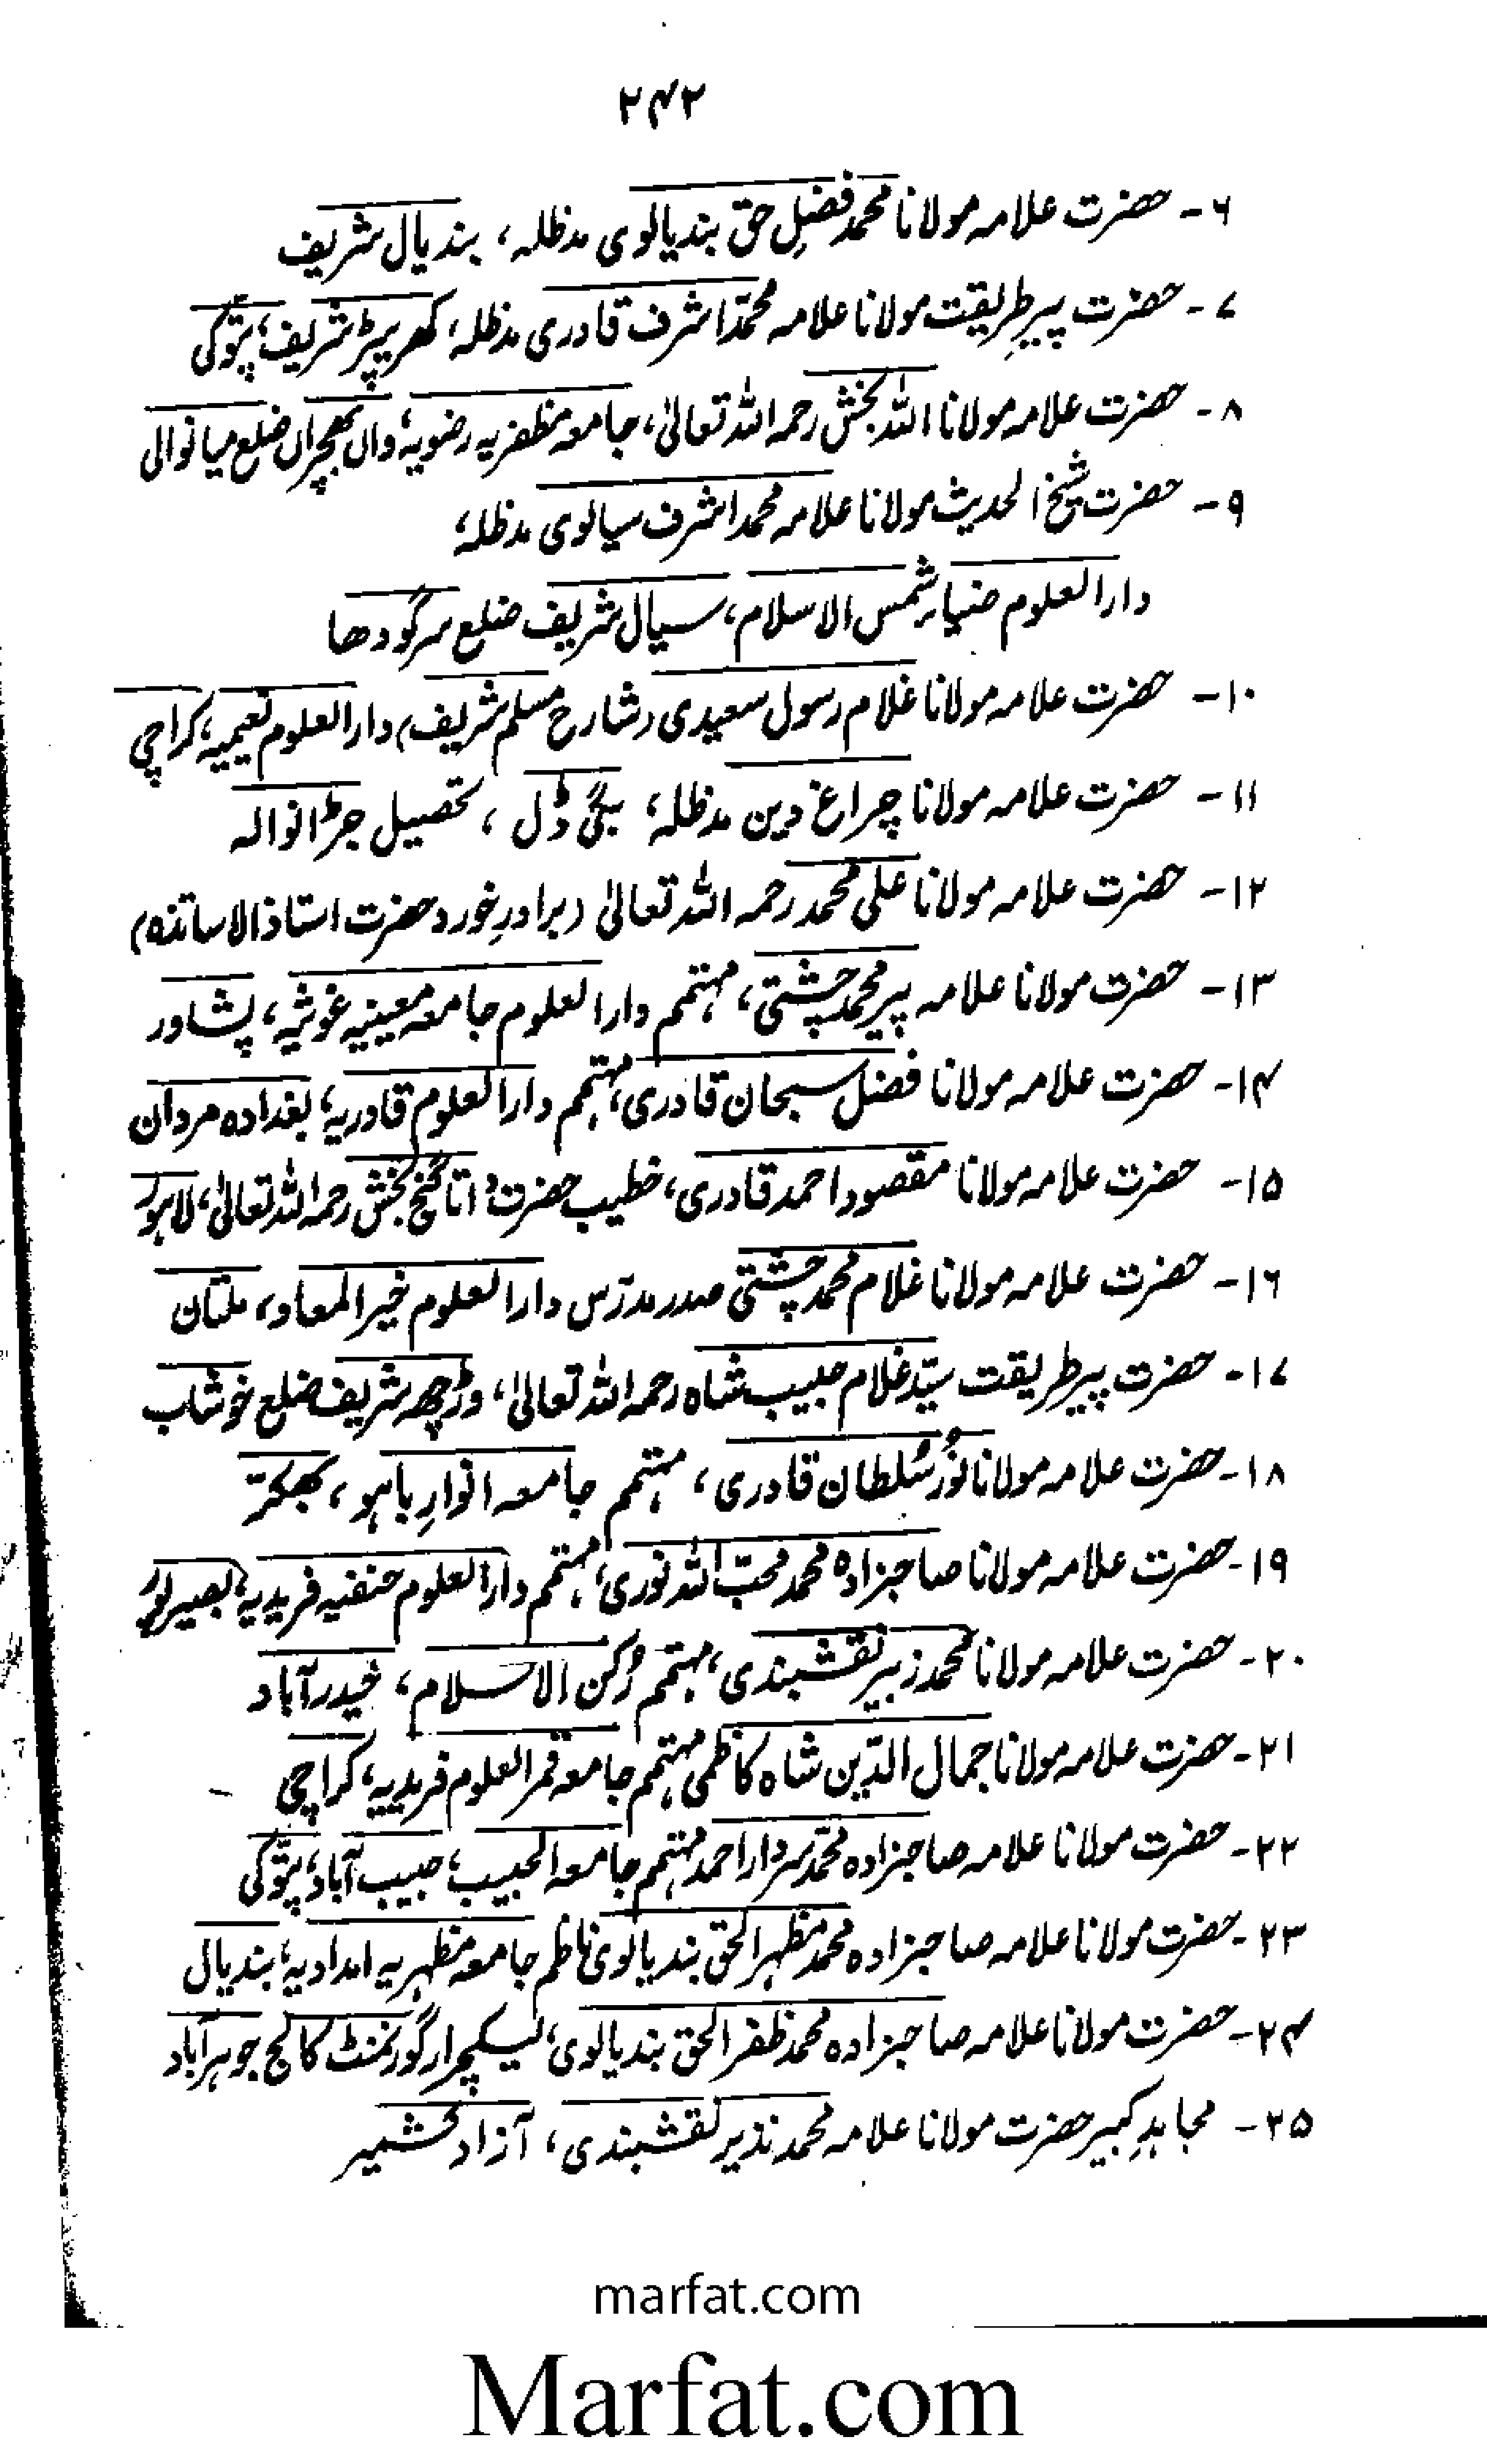 ۲۴۲
۶- حضرت علامہ مولانا محمد فضلِ حق بندیالوی مدظلہ، بندیال شریف
۷- حضرت پیرِ طریقت مولانا علامہ محمّد اشرف قادری مدظلہ، کھریپڑ شریف، پتّوکی
۸- حضرت علامہ مولانا اللہ بخش رحمہ اللہ تعالیٰ، جامعہ مظفریہ رضویہ، واں بھچراں ضلع میانوالی
۹- حضرت شیخ الحدیث مولانا علامہ محمد اشرف سیالوی مدظلہ،
دارالعلوم ضیاء شمس الاسلام، سیال شریف ضلع سرگودھا
۱۰- حضرت علامہ مولانا غلام رسول سعیدی (شارح مسلم شریف) دارالعلوم نعیمیہ، کراچی
۱۱- حضرت علامہ مولانا چراغ دین مدظلہ، ڈل، تحصیل جڑانوالہ
۱۲- حضرت علامہ مولانا علی محمد رحمہ اللہ تعالیٰ (برادرِ خورد حضرت استاذ الاساتذہ)
۱۳- حضرت مولانا علامہ پیر محمد چشتی، مہتمم دارالعلوم جامعہ معینیہ غوثیہ، پشاور
۱۴- حضرت علامہ مولانا فضل سبحان قادری، مہتمم دارالعلوم قادریہ، بغدادہ مردان
۱۵- حضرت علامہ مولانا مقصود احمد قادری، خطیب حضرت داتا گنج بخش رحمہ اللہ تعالیٰ، لاہور
۱۶- حضرت علامہ مولانا غلام محمد چشتی صدر مدرّس دارالعلوم خیر المعاد، ملتان
۱۷- حضرت پیر طریقت سیّد غلام حبیب شاہ رحمہ اللہ تعالیٰ، وڑچھہ شریف ضلع خوشاب
۱۸- حضرت علامہ مولانا نُور سُلطان قادری، مہتمم جامعہ انوارِ باہو، بھکّر
۱۹- حضرت علامہ مولانا صاحبزادہ محمد محبّ اللہ نوری، مہتمم دارالعلوم حنفیہ فریدیہ، بصیرپور
۲۰- حضرت علامہ مولانا محمد زبیر نقشبندی، مہتمم رُکن الاسلام، حیدرآباد
۲۱- حضرت علامہ مولانا جمال الدّین شاہ کاظمی مہتمم جامعہ قمر العلوم فریدیہ، کراچی
۲۲- حضرت مولانا علامہ صاحبزادہ محمّد سردار احمد مہتمم جامعہ الحبیب، حبیب آباد، پتّوکی
۲۳- حضرت مولانا علامہ صاحبزادہ محمد مظہر الحق بندیالوی ناظم جامعہ مظہریہ امدادیہ، بندیال
۲۴- حضرت مولانا علامہ صاحبزادہ محمد ظفر الحق بندیالوی، لیکچرار گورنمنٹ کالج جوہرآباد
۲۵- مجاہدِ کبیر حضرت مولانا علامہ محمد نذیر نقشبندی، آزاد کشمیر
marfat.com
Marfat.com